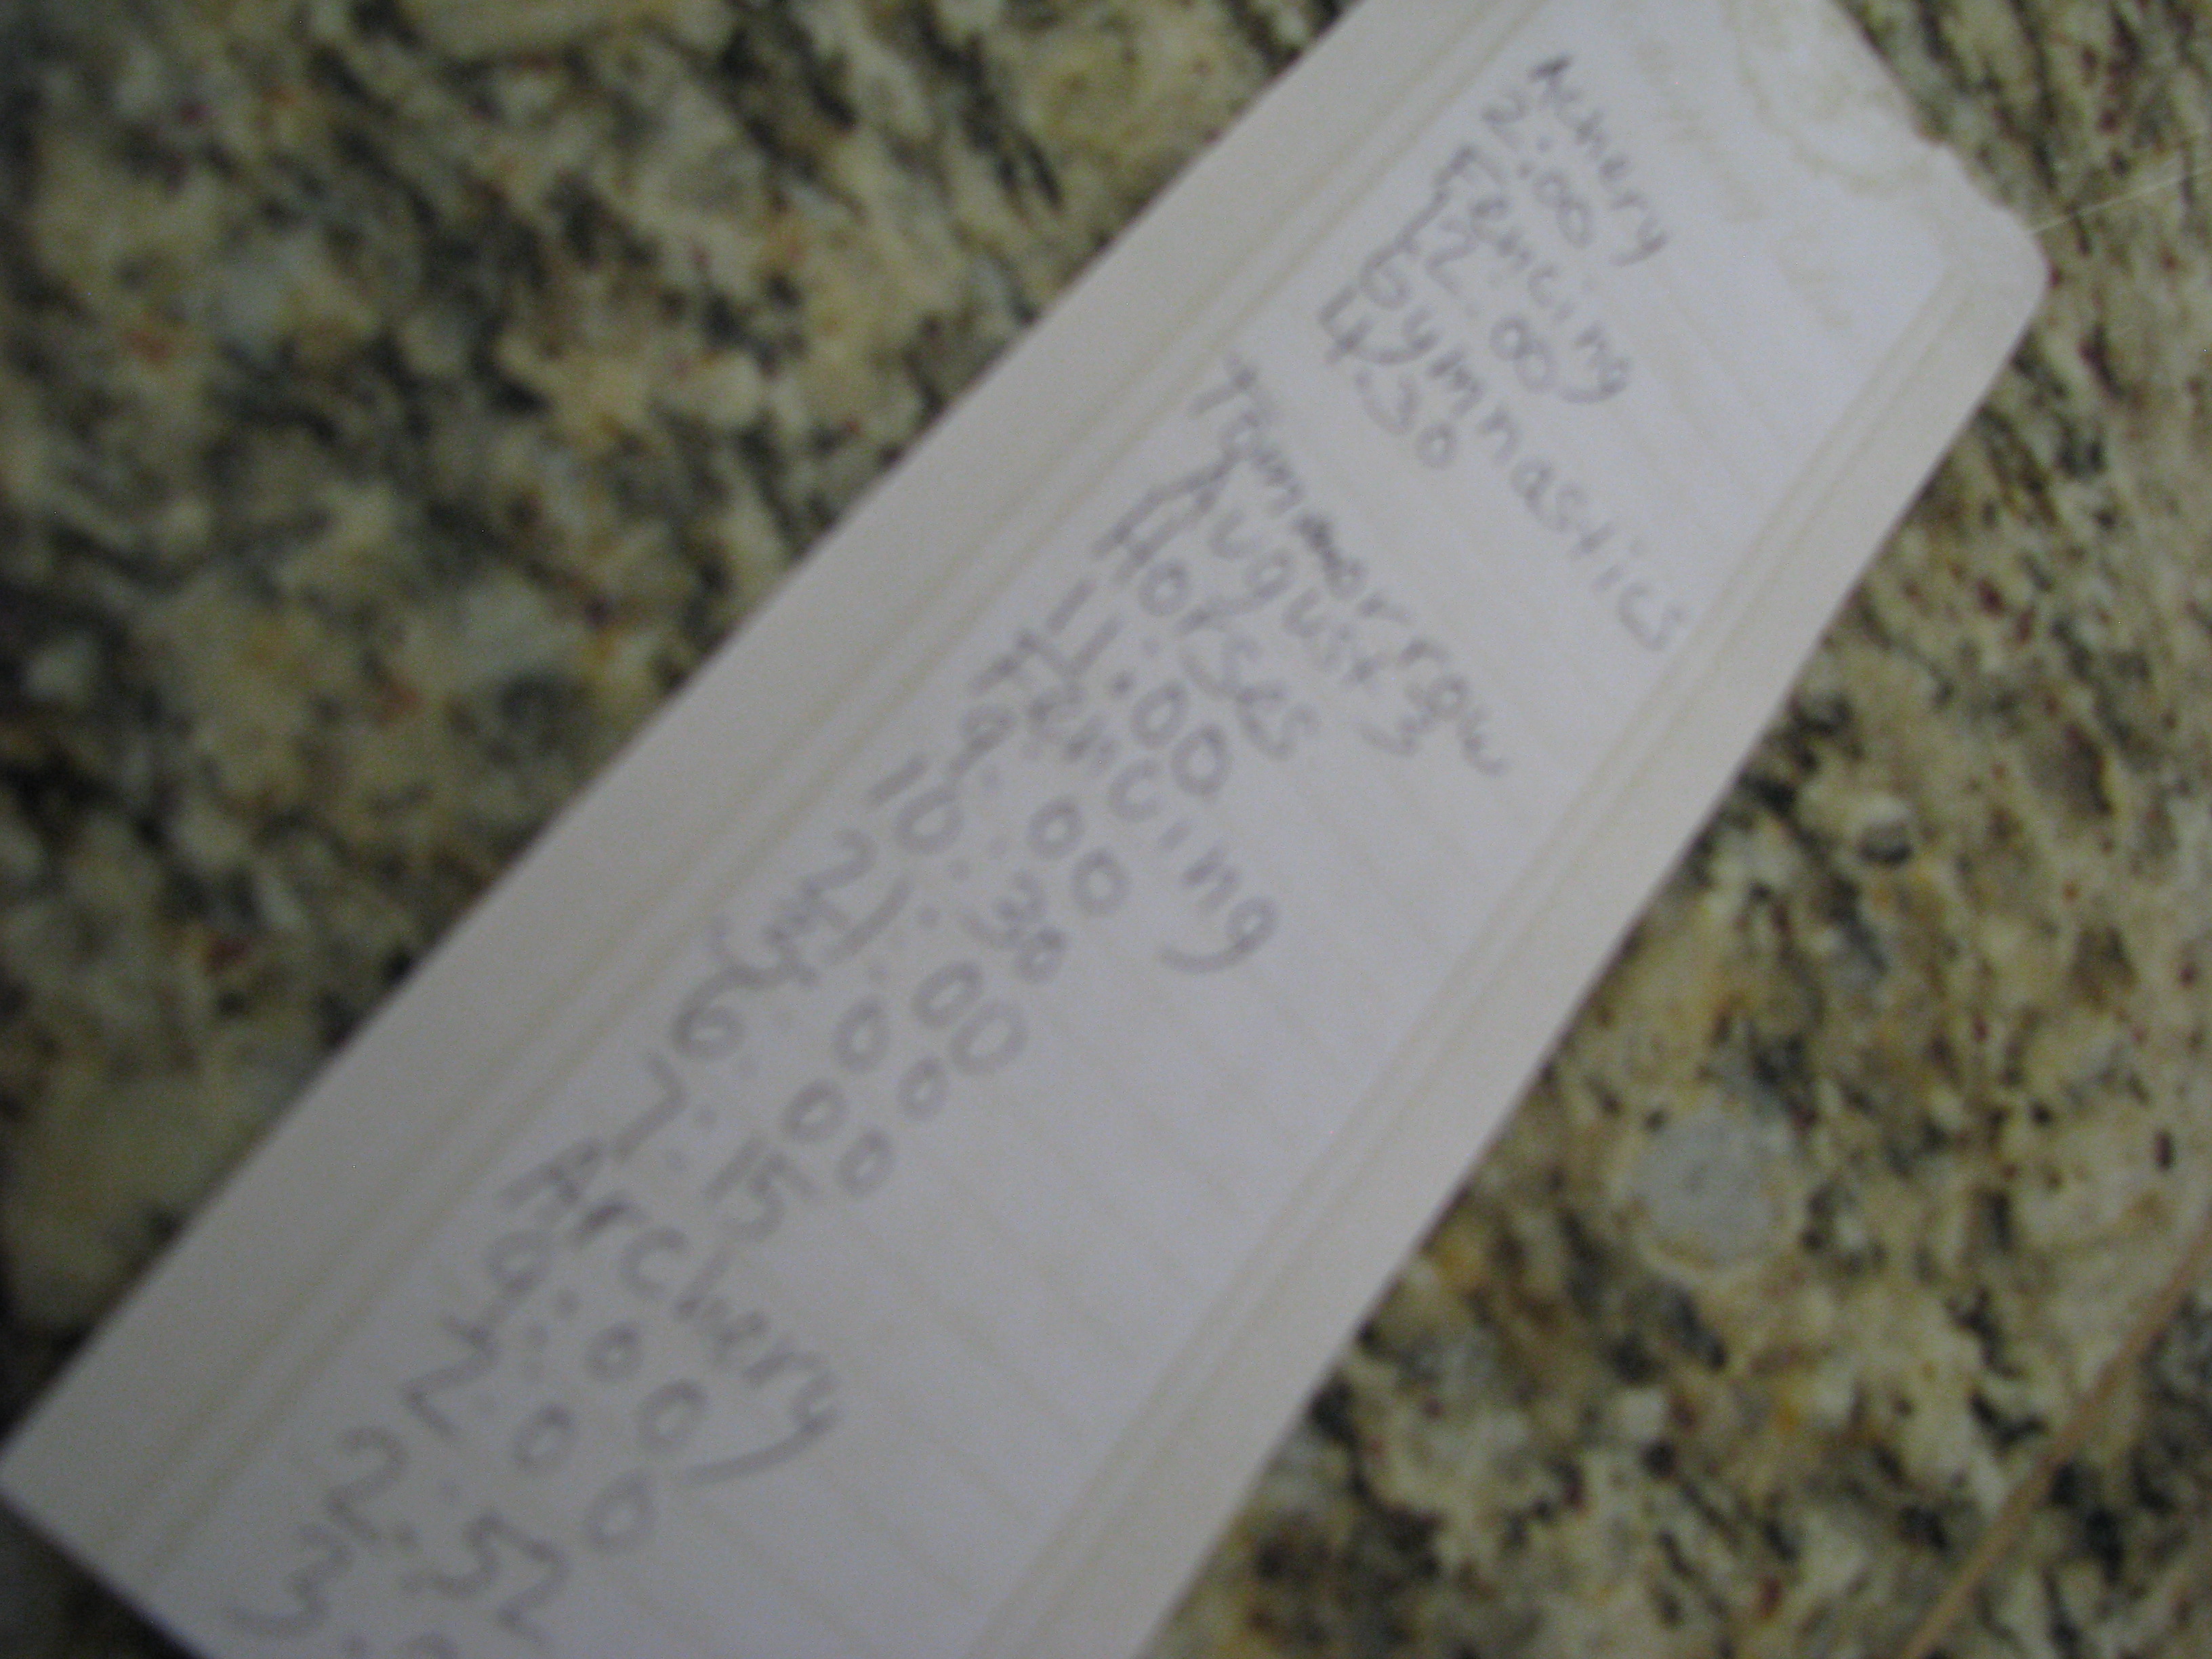 Achery
2:00
Fencing
12:00
Gymnastics
4:30
Tomorrow
August 3
Horses
11:00
Fencing
9:00
10:30
21:00
6:00
7:15
Archery
9:00
2:00
2:52